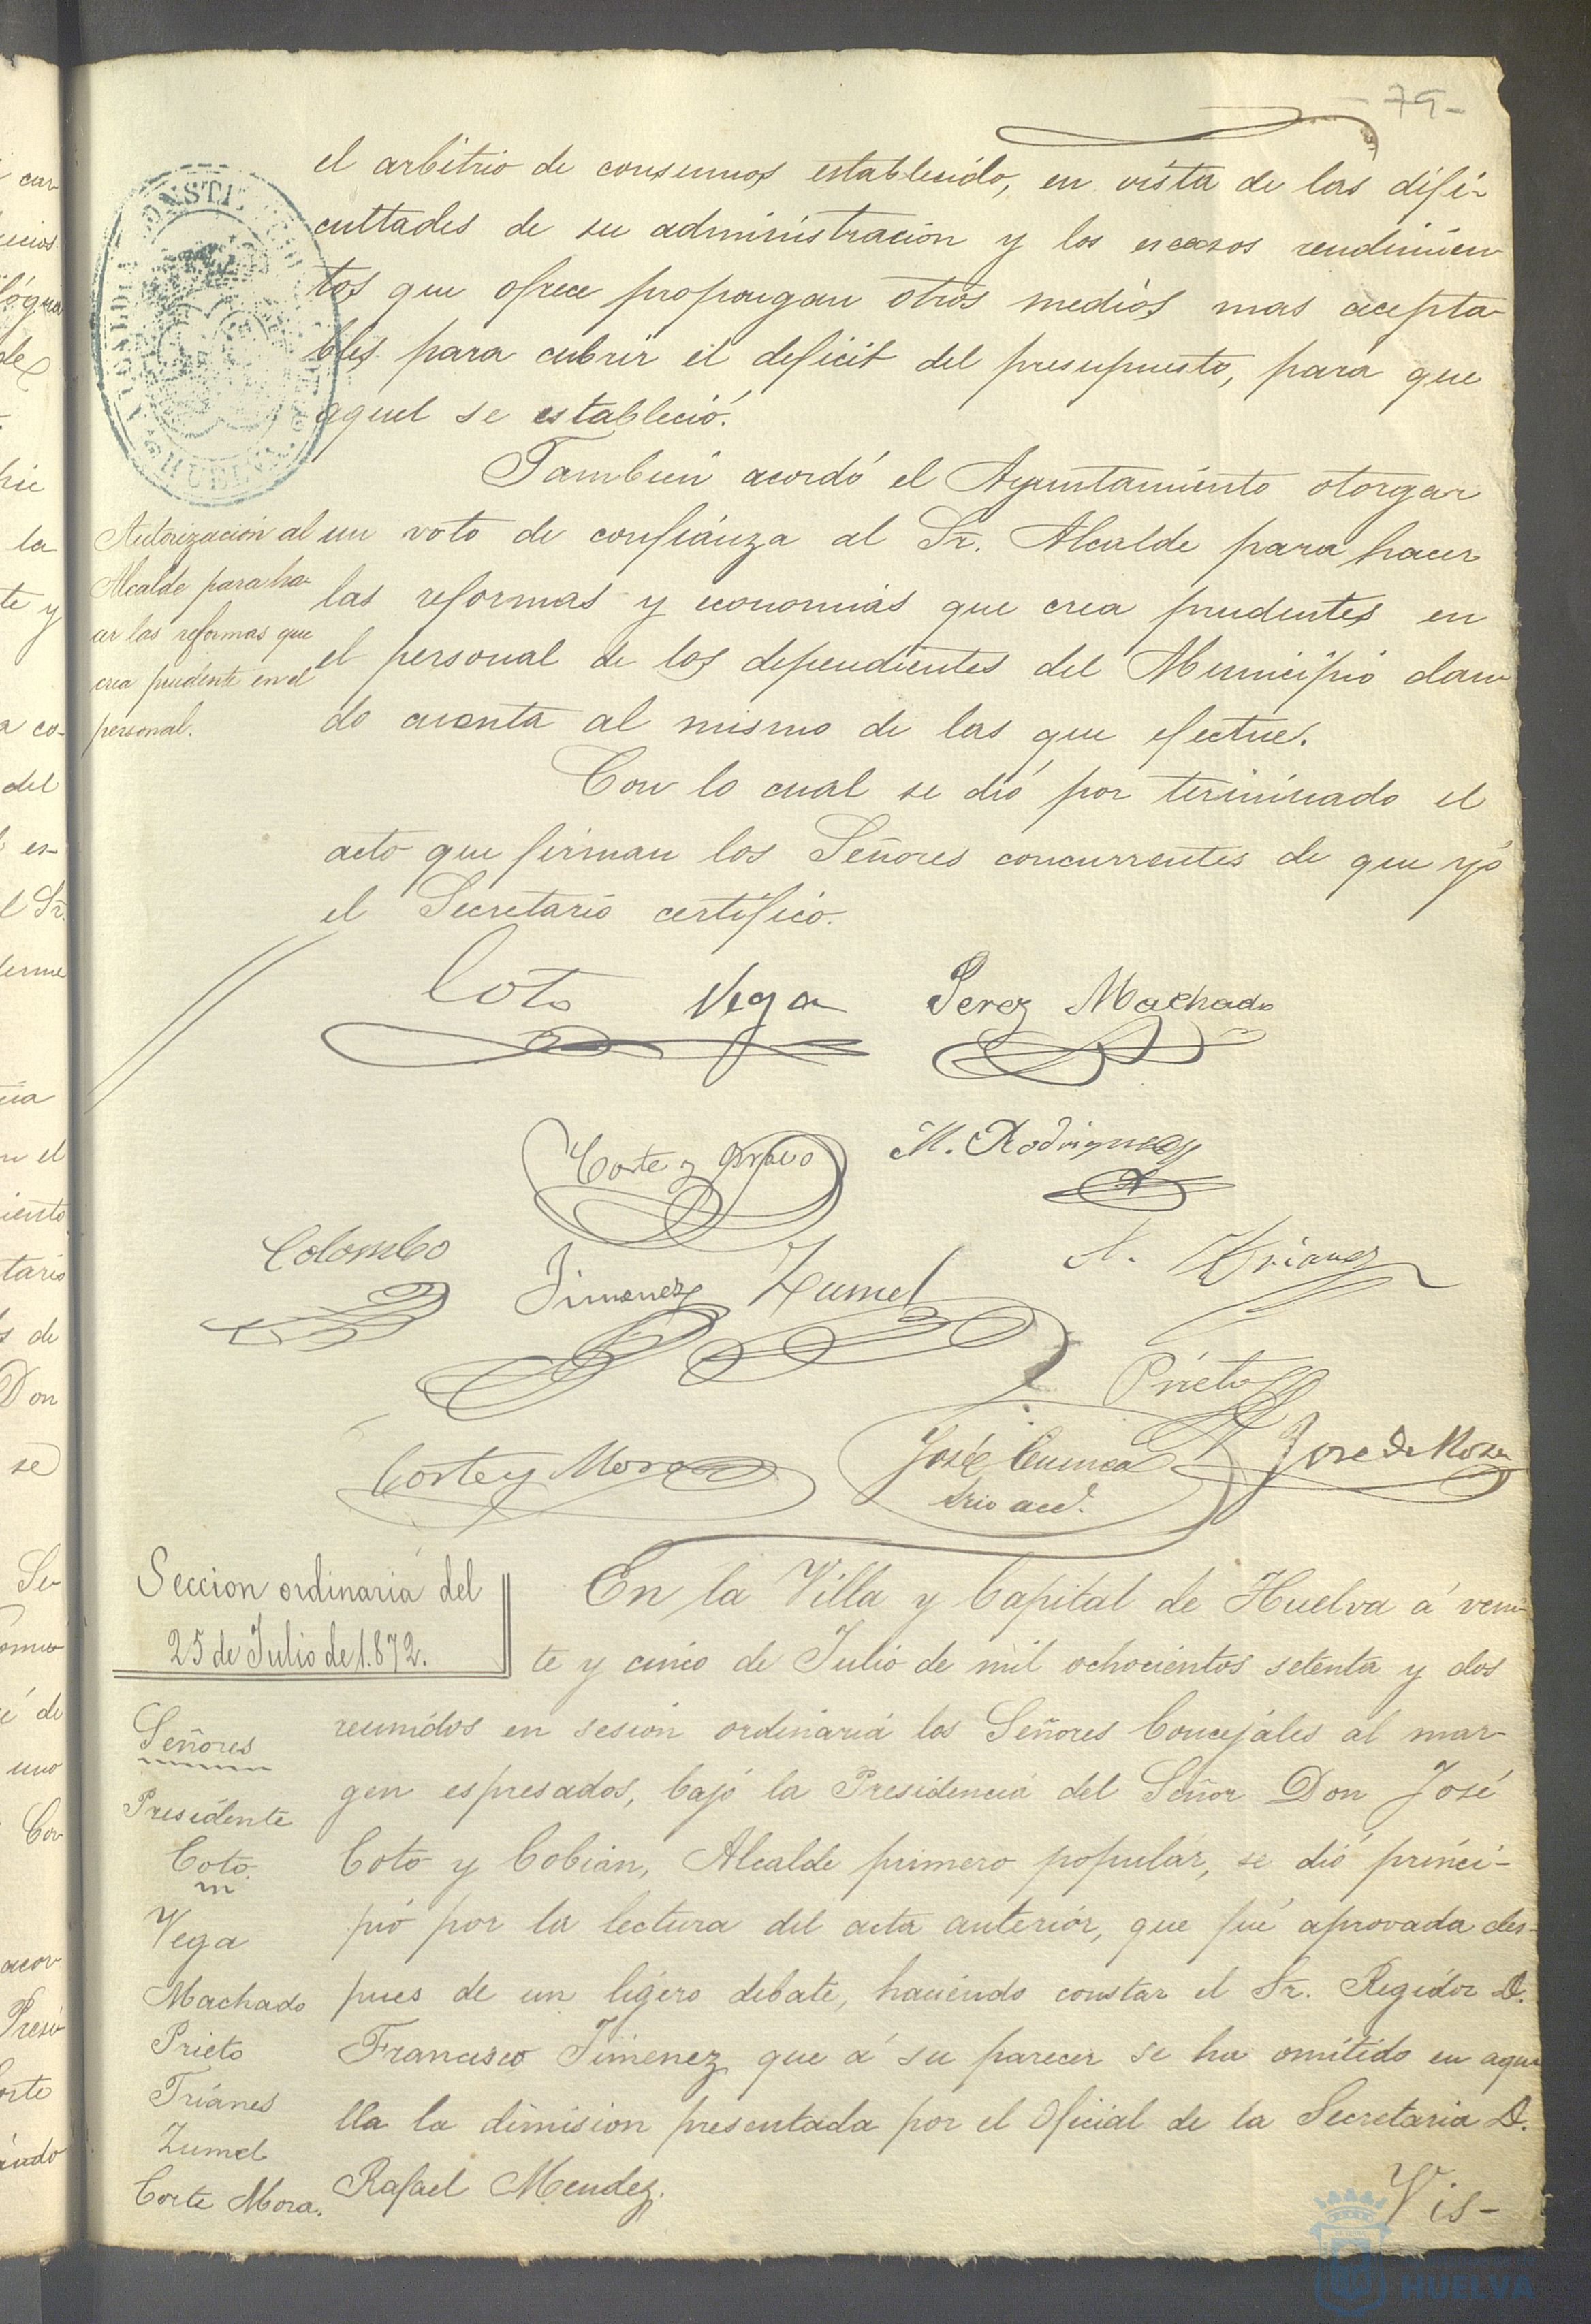 -79-
el arbitrio de consumos establecido, en vista de las difi-
cultades de su administración y los escasos rendimien-
tos que ofrece propongan otros medios mas acepta-
bles para cubrir el deficit del presupuesto, para que
aquel se estableció.
Tambien acordó el Ayuntamiento otorgar
un voto de confianza al Sr. Alcalde para hacer
las reformas y economias que crea prudentes en
el personal de los dependientes del Municipio dan-
do cuenta al mismo de las que efectue.
Autorización al
Alcalde para ha-
cer las reformas que
crea prudente en el
personal.
Con lo cual se dió por terminado el
acto que firman los Señores concurrentes de que yo
el Secretario certifico.
Coto Vega Perez Machado
Corte y Bravo M. Rodriguez
Colombo Jimenez Zumel A. Trianes
Prieto
Corte y Mora José Cuenca José de Mora
Srio accl.
Seccion ordinaria del
25 de Julio de 1.872.
En la Villa y Capital de Huelva á vein-
te y cinco de Julio de mil ochocientos setenta y dos
reunidos en sesion ordinaria los Señores Concejales al mar-
gen espresados, bajo la Presidencia del Señor Don José
Coto y Cobian, Alcalde primero popular, se dió princi-
pio por la lectura del acta anterior, que fué aprovada des-
pues de un ligero debate, haciendo constar el Sr. Regidor D.
Francisco Jimenez que á su parecer se ha omitido en aque
lla la dimision presentada por el Oficial de la Secretaria D.
Rafael Mendez.
Señores
Presidente
Coto
Vega
Machado
Prieto
Trianes
Zumel
Corte Mora.
Vis-
HUELVA